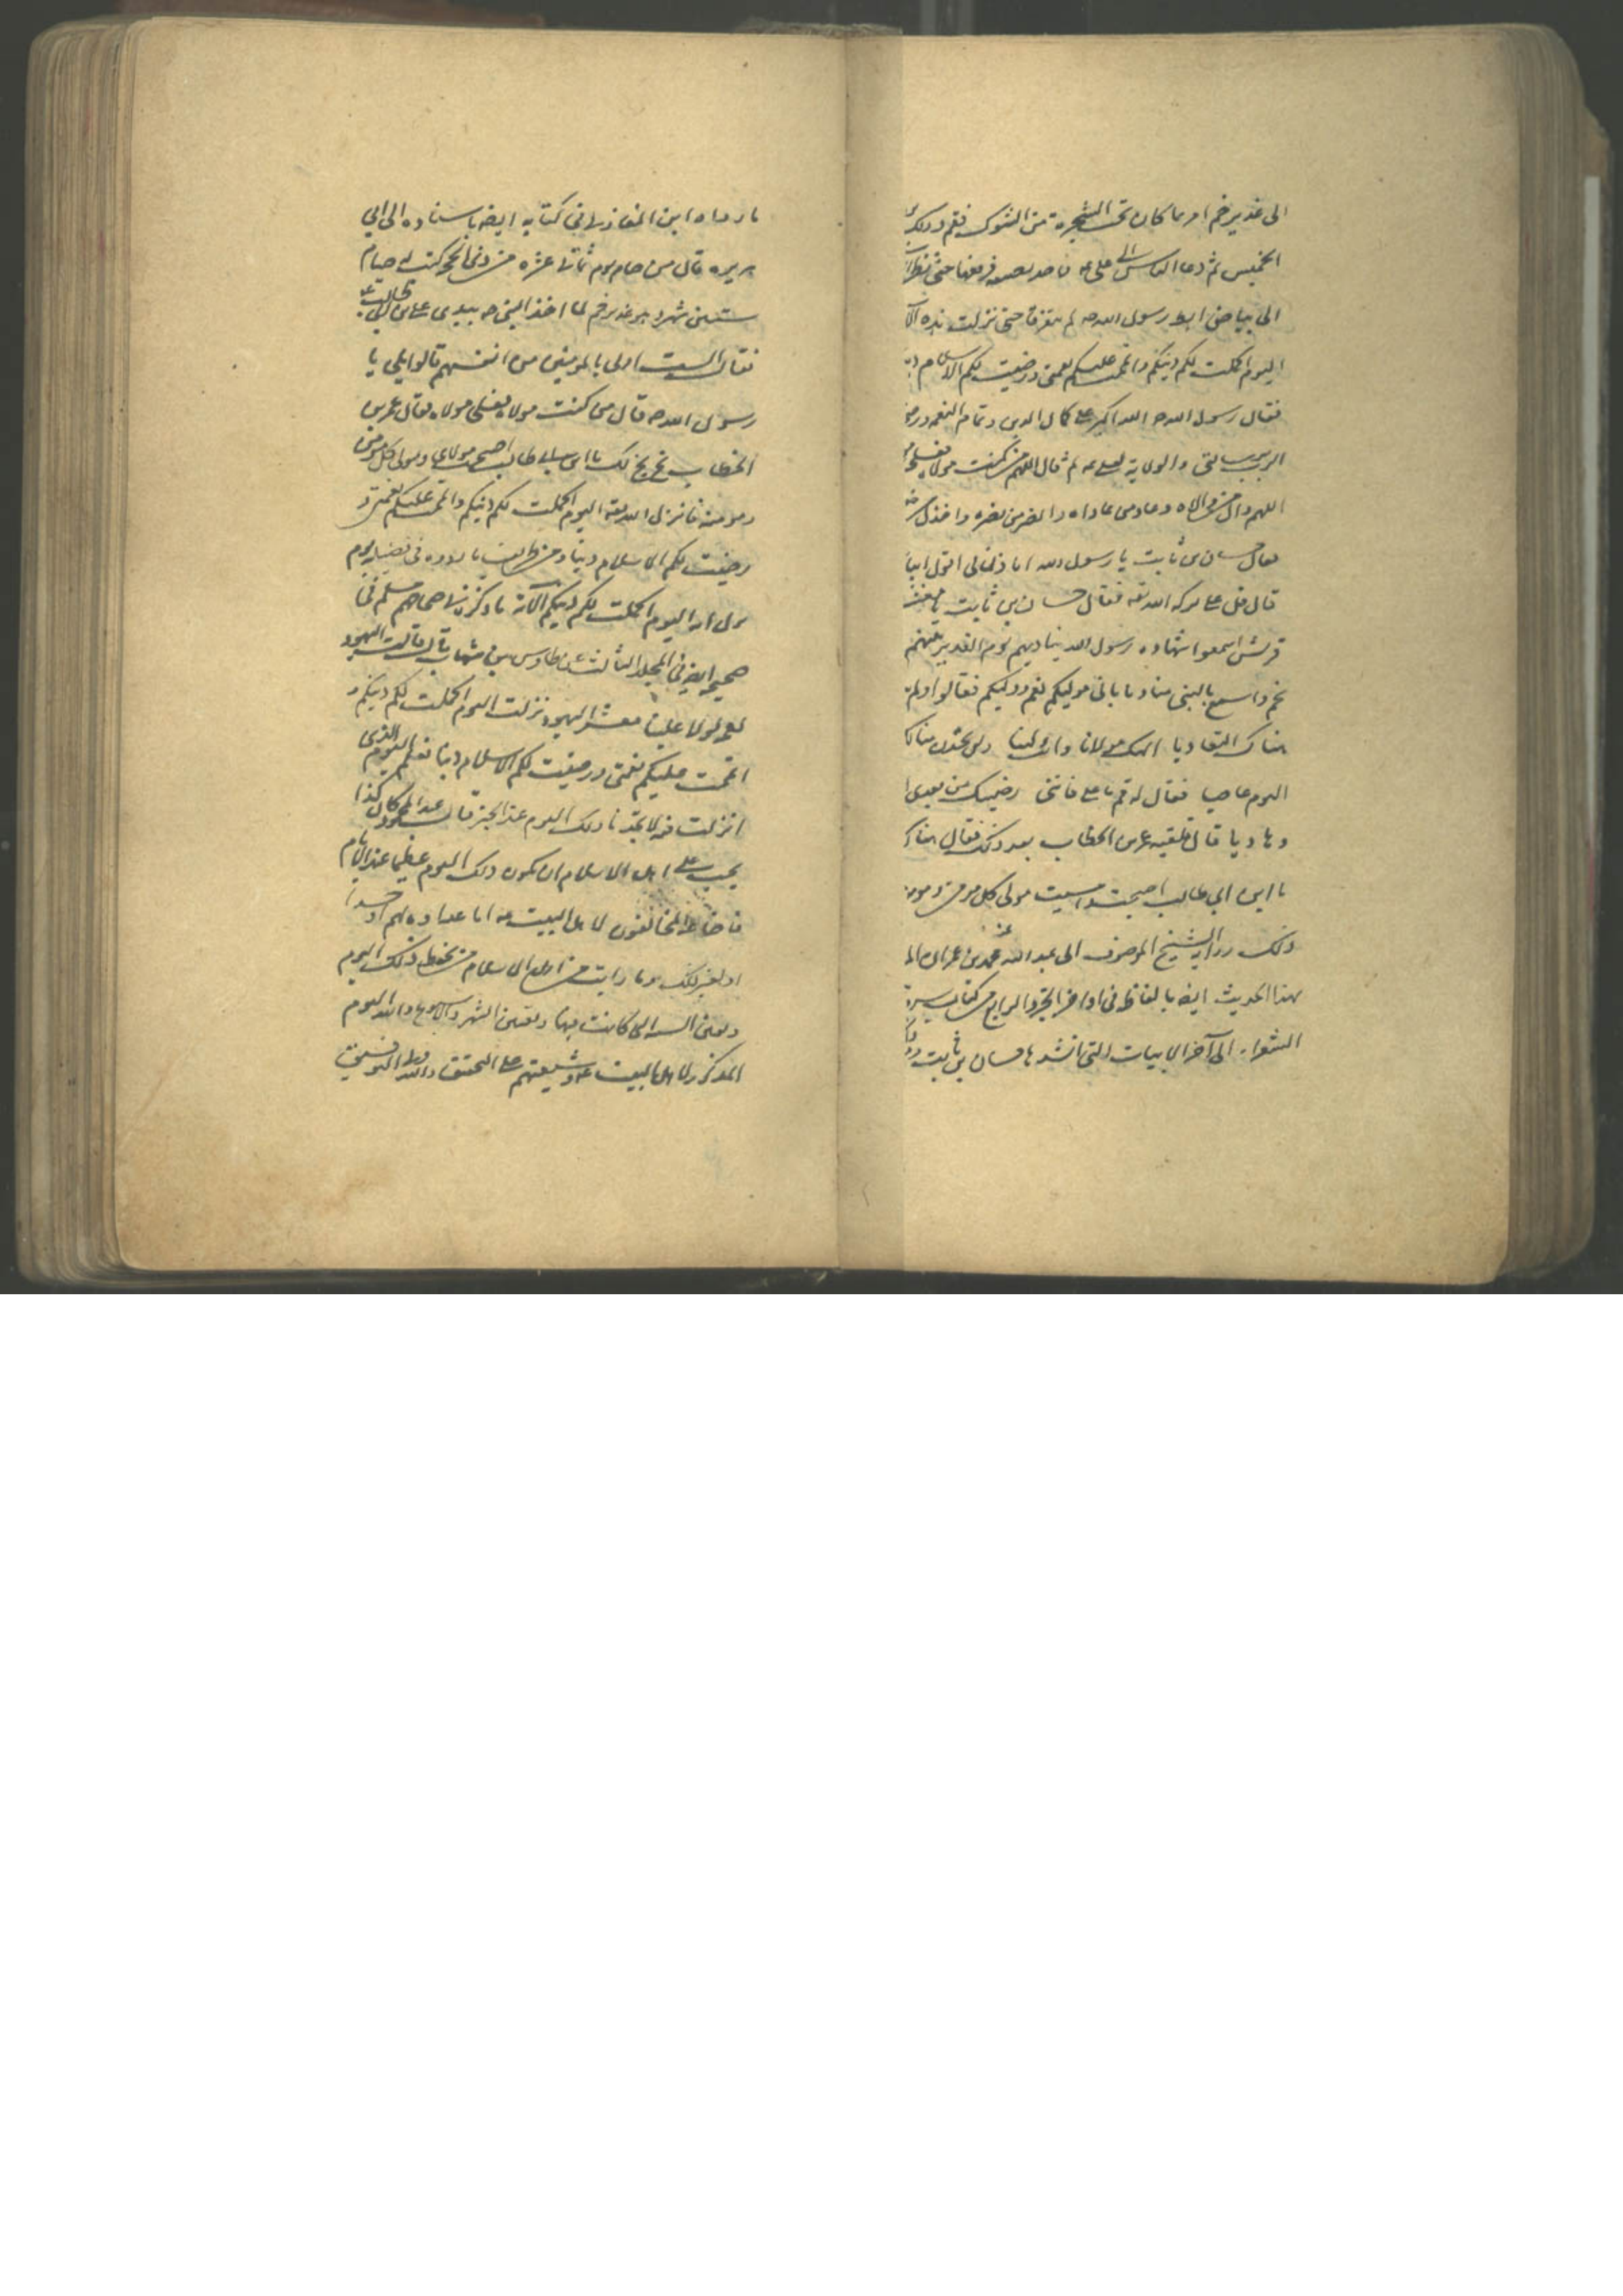 الى غدير خم امر بما كان تحت الشجرة من الشوك فقم وذلك
الخميس ثم دعا الناس الى على عم فاخذ بضبعيه فرفعها حتى نظر
الى بياض ابط رسول الله صم لم يتفرقا حتى نزلت هذه
اليوم اكملت لكم دينكم واتممت عليكم نعمتى ورضيت لكم الاسلام
فقال رسول الله صم الله اكبر على كمال الدين وتمام النعمة
الرب برسالتى والولاية لعلى عم ثم قال اللهم من كنت مولاه فعلى
اللهم وال من والاه وعاد من عاداه وانصر من نصره واخذل
فقال حسان بن ثابت يا رسول الله اتاذن لى اقول
قال قل على بركة الله تعه فقال حسان بن ثابت يا
قريش اسمعوا شهادة رسول الله يناديهم يوم الغدير نبيهم
بخم واسمع بالنبى مناديا بانى موليكم نعم ووليكم فقالوا ولم
هناك التعاديا الهك مولانا وانت ولينا ولن تجدن منا
اليوم عاصيا فقال له قم يا على فاننى رضيتك من بعدى
وهاديا قال فلقيه عمر بن الخطاب بعد ذلك فقال
يا ابن ابي طالب اصبحت وامسيت مولى كل مومن ومومنة
ذلك رواية الشيخ الموصوف ابى عبد الله محمد بن عمران
لهذا الحديث ايضا بالفاظه فى اواخر الجزو الرابع من كتاب
الشعراء الى آخر الابيات التى انشدها حسان بن ثابت
ما رواه ابن المغازلى فى كتابه ايضا باسناده الى ابي
هريره قال من صام يوم ثمانى عشره من ذى الحجه كتب له صيام
ستين شهرا وهو غدير خم لما اخذ النبى صم بيد على بن ابى طالب عم
فقال الست اولى بالمومنين من انفسهم قالوا بلى يا
رسول الله صم قال من كنت مولاه فعلى مولاه فقال عمر بن
الخطاب بخ بخ لك يا ابن ابى طالب اصبحت مولاى ومولى كل مومن
ومومنة فانزل الله تعه اليوم اكملت لكم دينكم واتممت عليكم نعمتى و
رضيت لكم الاسلام دينا ومن طرائف ما رووه فى فضيلة يوم
نزول آية اليوم اكملت لكم دينكم الآية ما ذكره فى صحاحهم مسلم فى
صحيحه ايضا فى المجلد الثالث عن طاوس بن شهاب قال قالت اليهود
لعمر لو علينا معشر اليهود نزلت اليوم اكملت لكم دينكم و
اتممت عليكم نعمتى ورضيت لكم الاسلام دينا نعلم اليوم الذى
انزلت فيه لاتخذنا ذلك اليوم عيدا الخبر قال عبد المحمود كان كذا
يجب على اهل الاسلام ان يكون ذلك اليوم عظيما عند الايام
فاضاعه المخالفون لاهل البيت عم اما عداوة لهم او حسدا
او لغير ذلك وما رايت من اهل الاسلام من يحفظ ذلك اليوم
ويعين السنة التى كانت فيها ويعين الشهر والاسبوع واليوم
المذكور الا اهل البيت عم وشيعتهم على التحقيق والله ولى التوفيق